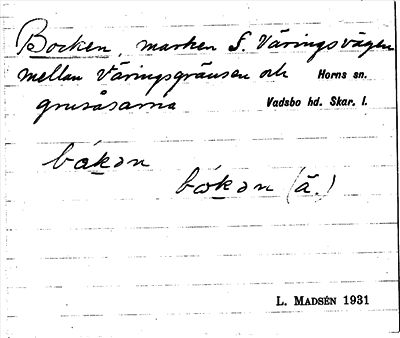 Bocken, marken S. Väringsvägen
mellan Väringsgränsen och Horns sn.
grusåsarna Vadsbo hd. Skar. l.
båkən
bókən (ä.)
L. MADSÉN 1931